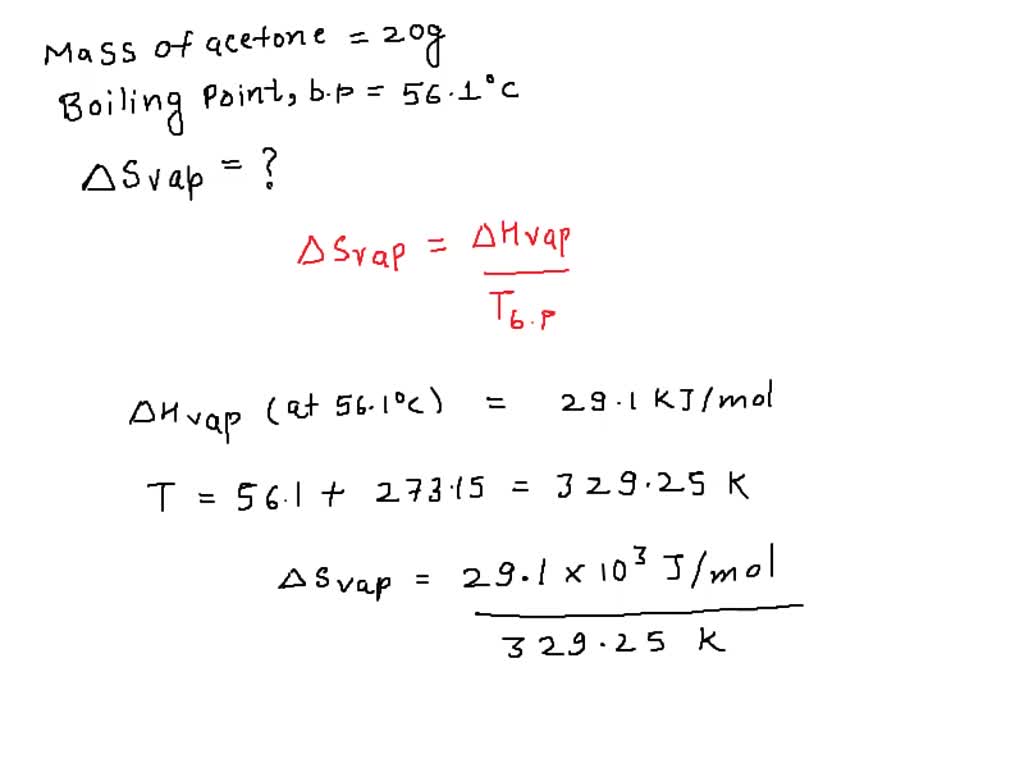 Mass of acetone = 20g
Boiling Point, b.p = 56.1°C
ΔSvap = ?
ΔSvap = ΔHvap
Tb.p
ΔHvap (at 56.1°C) = 29.1 KJ/mol
T = 56.1 + 273.15 = 329.25 K
ΔSvap = 29.1 × 10³ J/mol
329.25 K